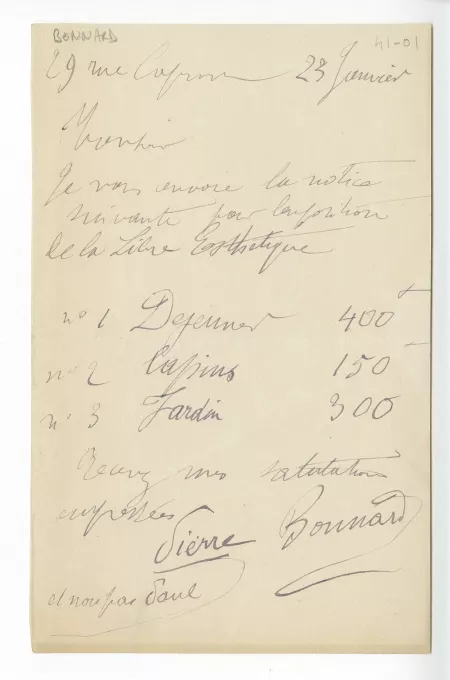 BONNARD
41-01
29 rue Capron 23 Janvier
Monsieur
Je vous envoie la notice
suivante pour l'exposition
de la Libre Esthetique
n° 1 Dejeuner 400
n° 2 Lapins 150
n° 3 Jardin 300
Recevez mes salutations
empressées
Pierre Bonnard
et non pas Paul